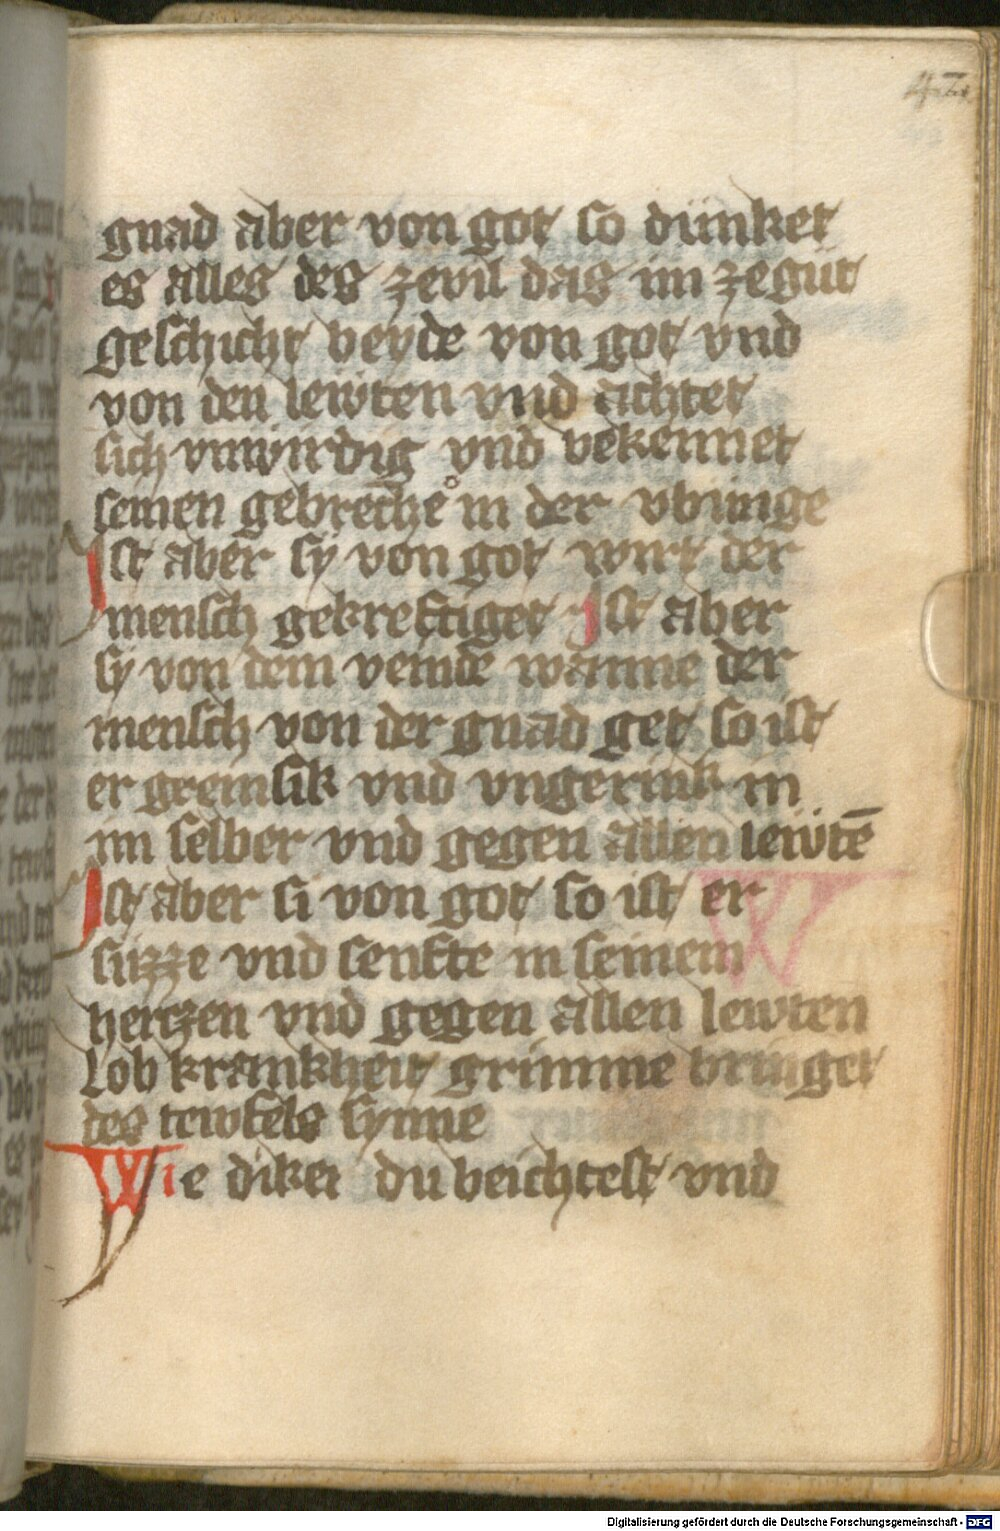 47
gnad aber von got so dünket
es alles des zevil das im zegüt
geschicht beyde von got vnd
von den lewten vnd achtet
sich vnwirdig vnd bekennet
seinen gebrechē in der vbunge
Ist aber sy von got wirt der
mensch gekreftiget Ist aber
sy von dem veinde wanne der
mensch von der gnad get so ist
er greinsik vnd vngerink in
im selber vnd gegen allen lewtē
Ist aber si von got so ist er
süzze vnd senfte in seinem
herczen vnd gegen allen lewten
Lob krankheit grimme bringet
des tewfels synne
Wie diker du beichtest vnd
Digitalisierung gefördert durch die Deutsche Forschungsgemeinschaft - DFG